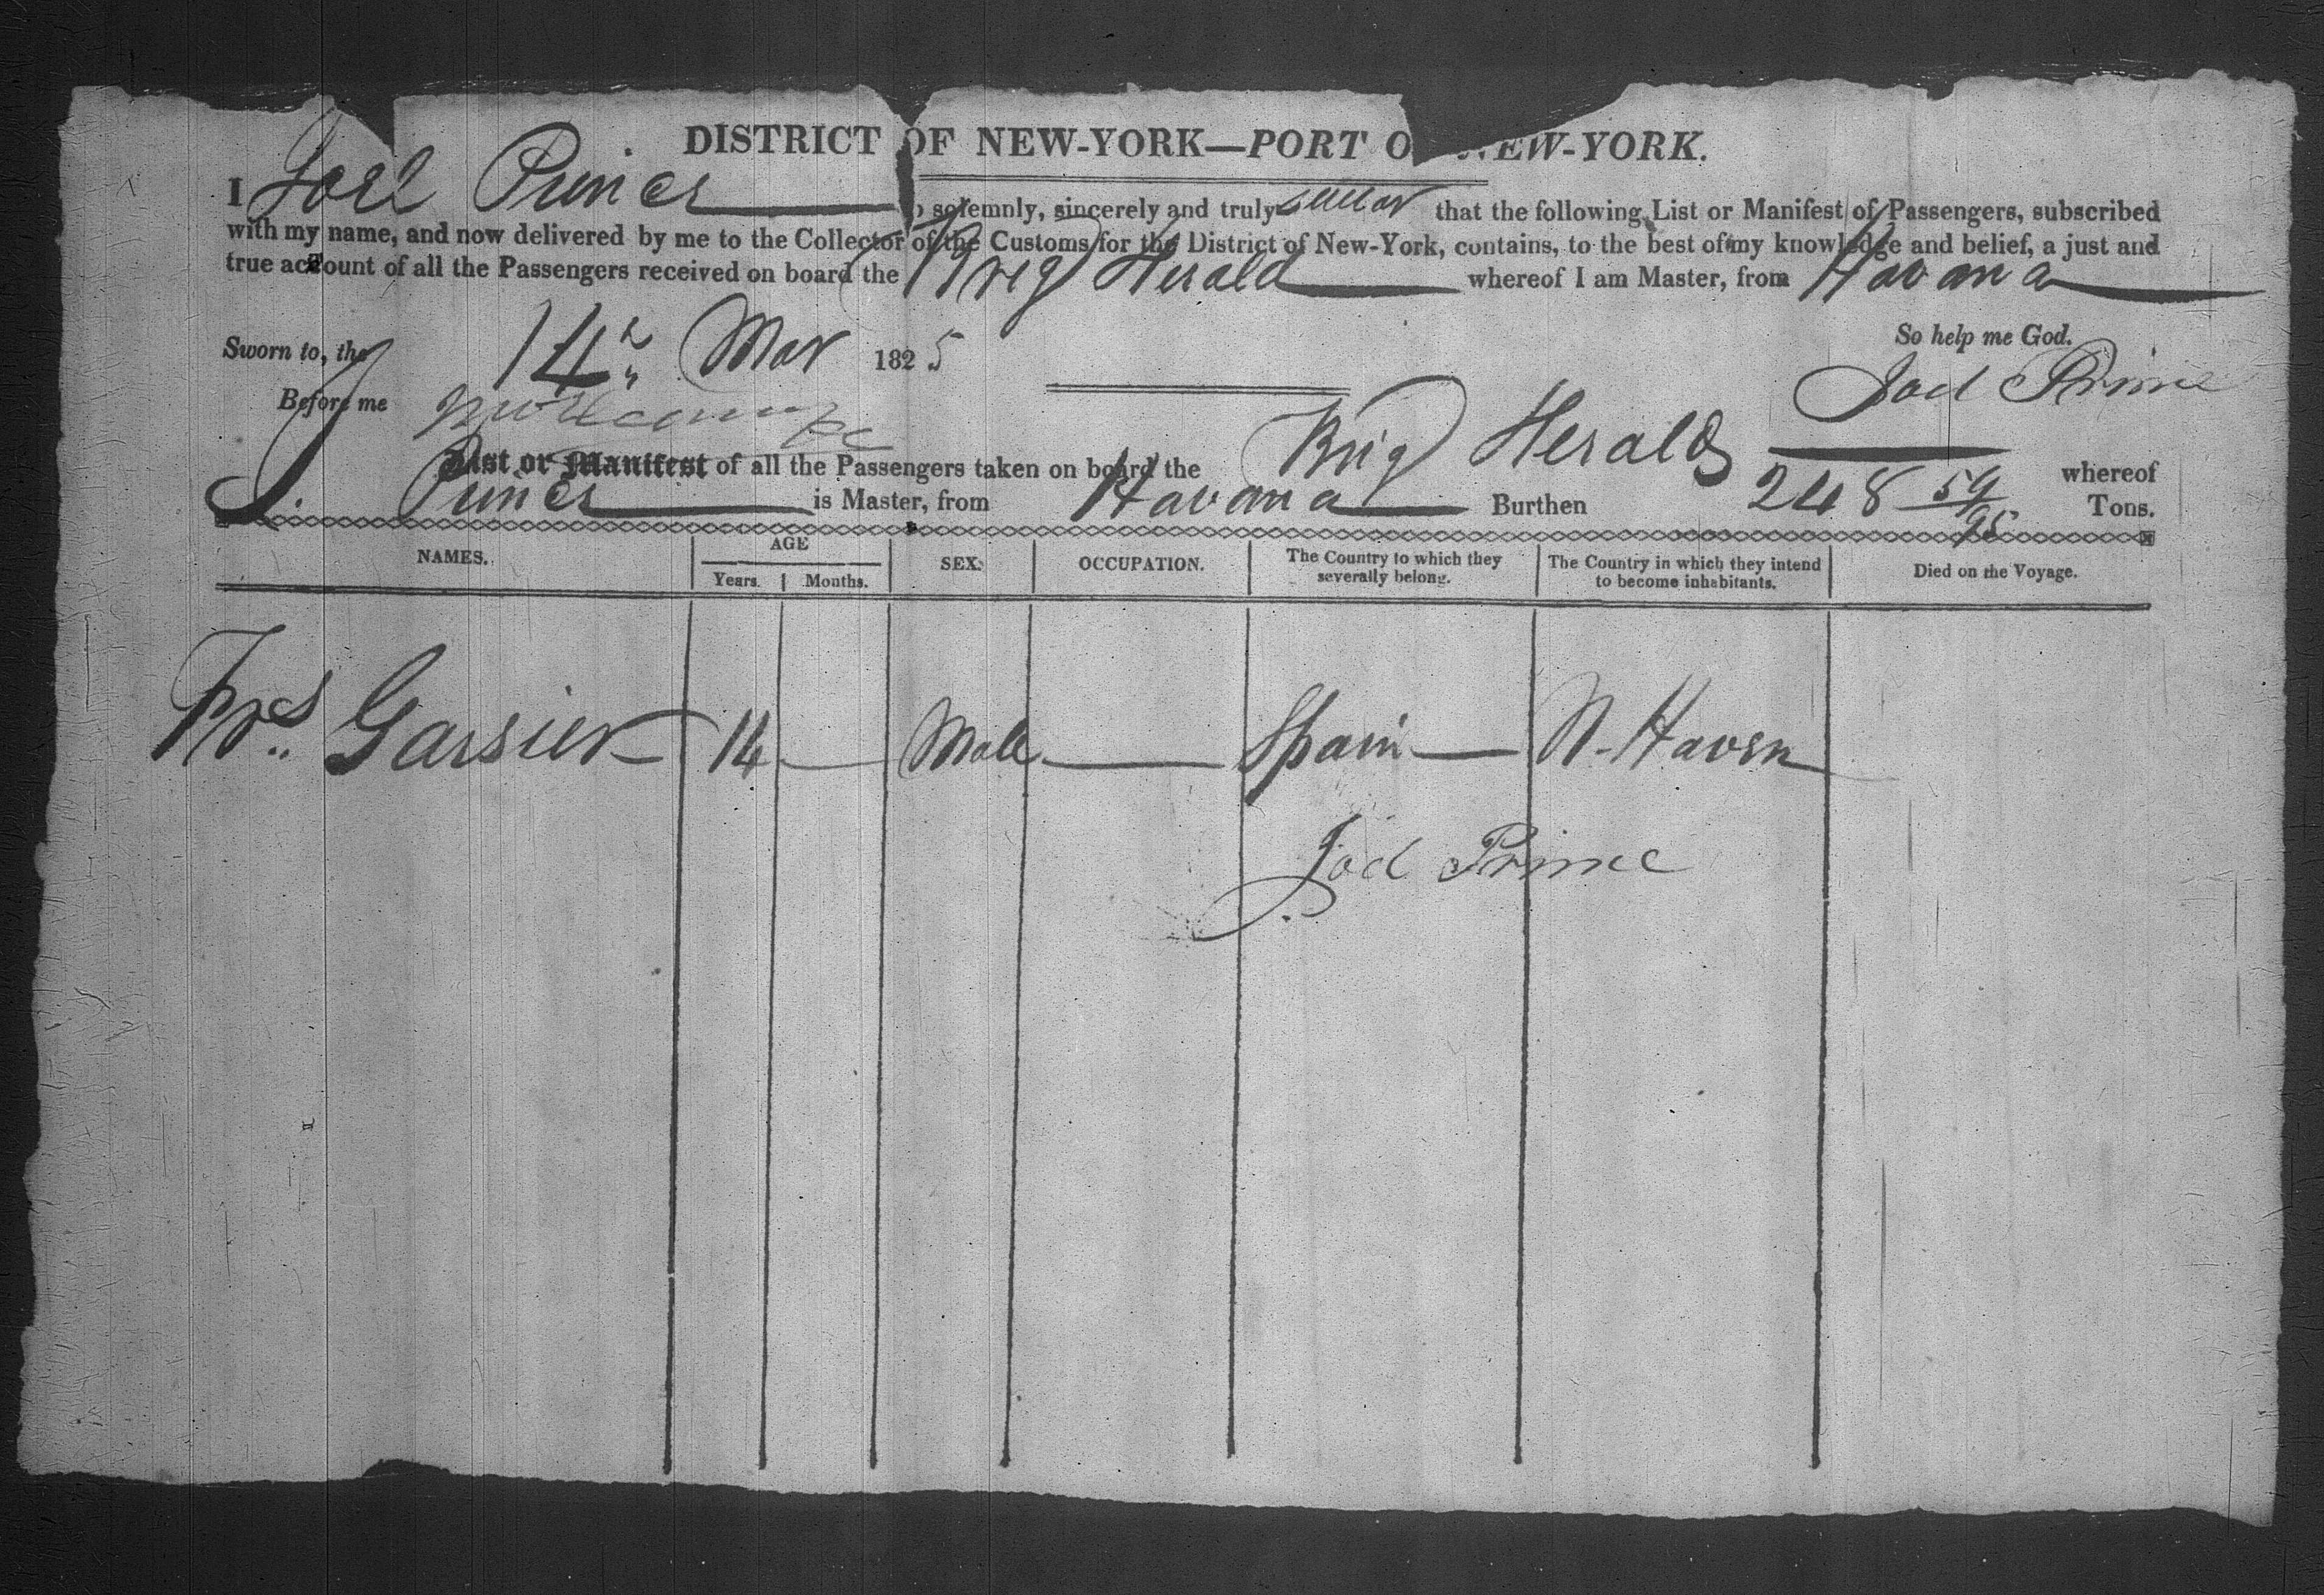 DISTRICT OF NEW-YORK—PORT O NEW-YORK.
I Joel Prince solemnly, sincerely and truly swear that the following List or Manifest of Passengers, subscribed
with my name, and now delivered by me to the Collector of the Customs for the District of New-York, contains, to the best of my knowledge and belief, a just and
true account of all the Passengers received on board the Brig Herald whereof I am Master, from Havana
So help me God.
Sworn to, the 14 Mar 1825
Joel Prince
Before me
List or Manifest of all the Passengers taken on board the Brig Herald whereof
J. Prince is Master, from Havana Burthen 248 59/95 Tons.
NAMES. AGE Years. Months. SEX. OCCUPATION. The Country to which they severally belong. The Country in which they intend to become inhabitants. Died on the Voyage.
Frs Garsier 14 Male Spain N-Haven
Joel Prince